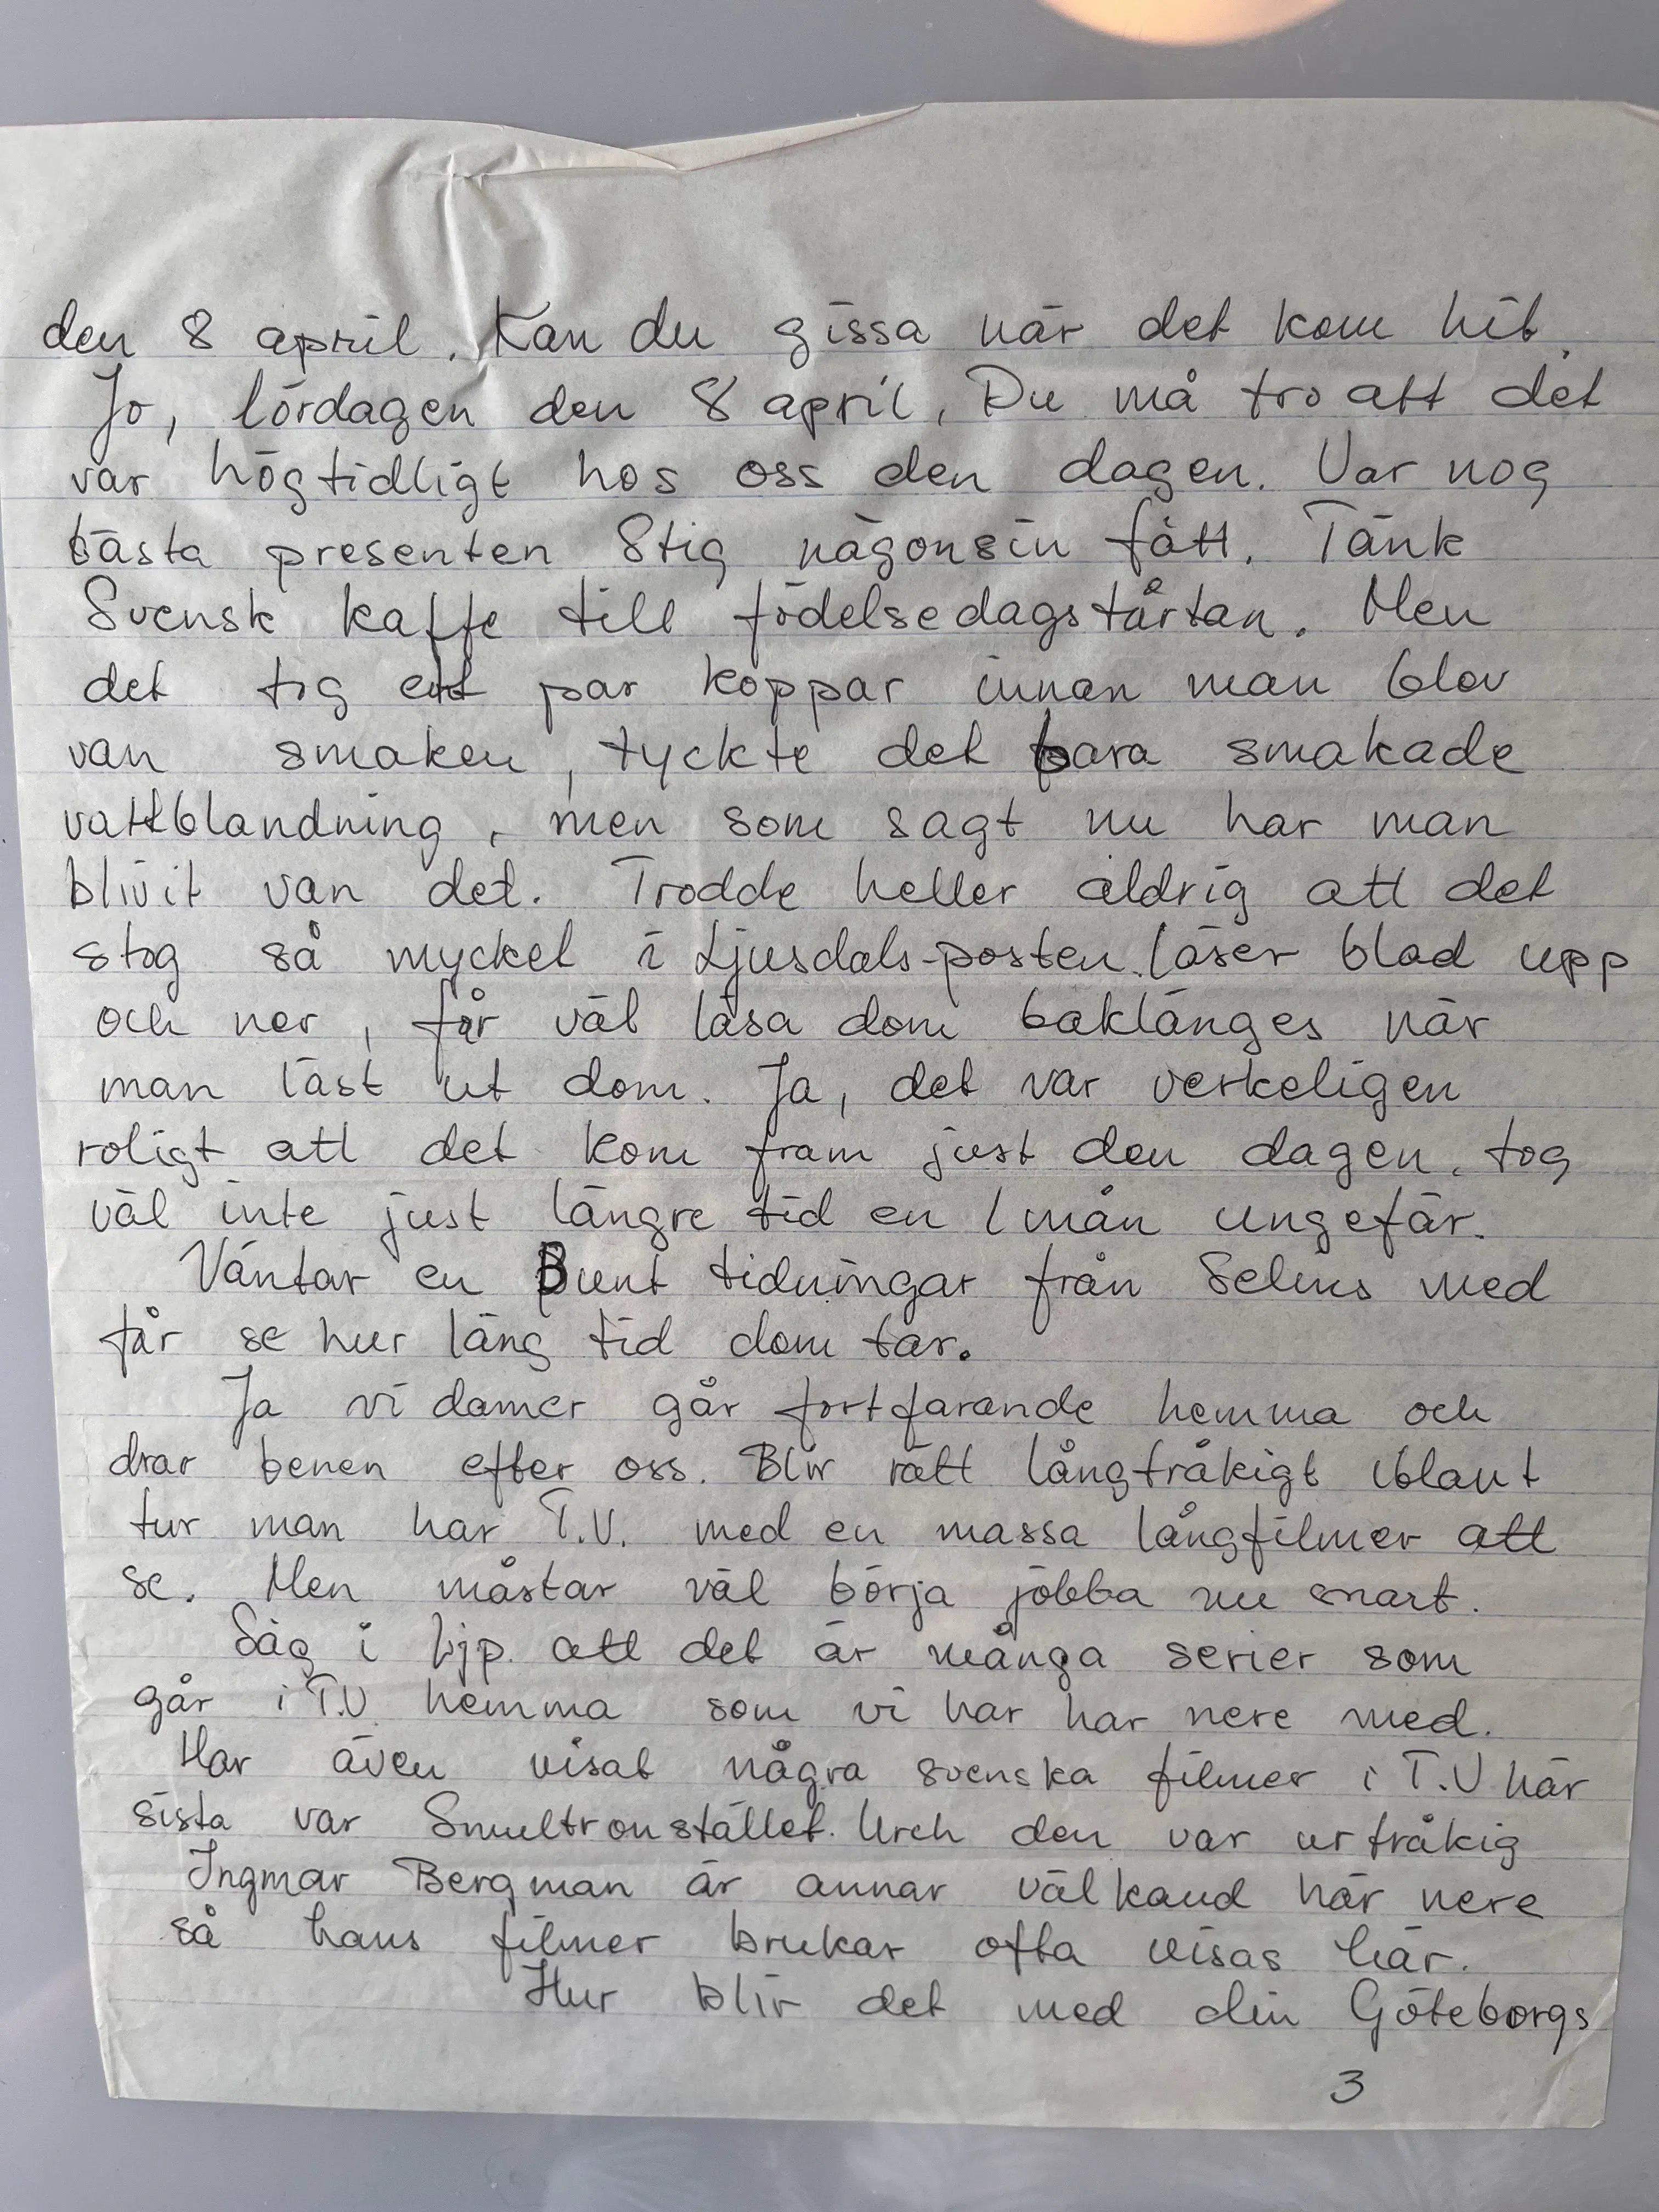 den 8 april. Kan du gissa när det kom hit.
Jo, lördagen den 8 april. Du må tro att det
var högtidligt hos oss den dagen. Var nog
bästa presenten Stig någonsin fått. Tänk
Svensk kaffe till födelsedagstårtan. Men
det tog ett par koppar innan man blev
van smaken, tyckte det bara smakade
vattblandning, men som sagt nu har man
blivit van det. Trodde heller aldrig att det
stog så mycket i Ljusdals-posten. läser blad upp
och ner, får väl läsa dom baklänges när
man läst ut dom. Ja, det var verkeligen
roligt att det kom fram just den dagen. tog
väl inte just längre tid en 1 mån ungefär.
Väntar en Bunt tidningar från Selins med
får se hur lång tid dom tar.
Ja vi damer går fortfarande hemma och
drar benen efter oss. Blir rätt långtråkigt iblant
tur man har T.V. med en massa långfilmer att
se. Men måstar väl börja jobba nu snart.
Såg i Ljp. att det är många serier som
går i T.V hemma som vi har har nere med.
Har även visat några svenska filmer i T.V här
sista var Smultronstället. Urch den var urtråkig
Ingmar Bergman är annar välkand här nere
så hans filmer brukar ofta visas här.
Hur blir det med din Göteborgs
3